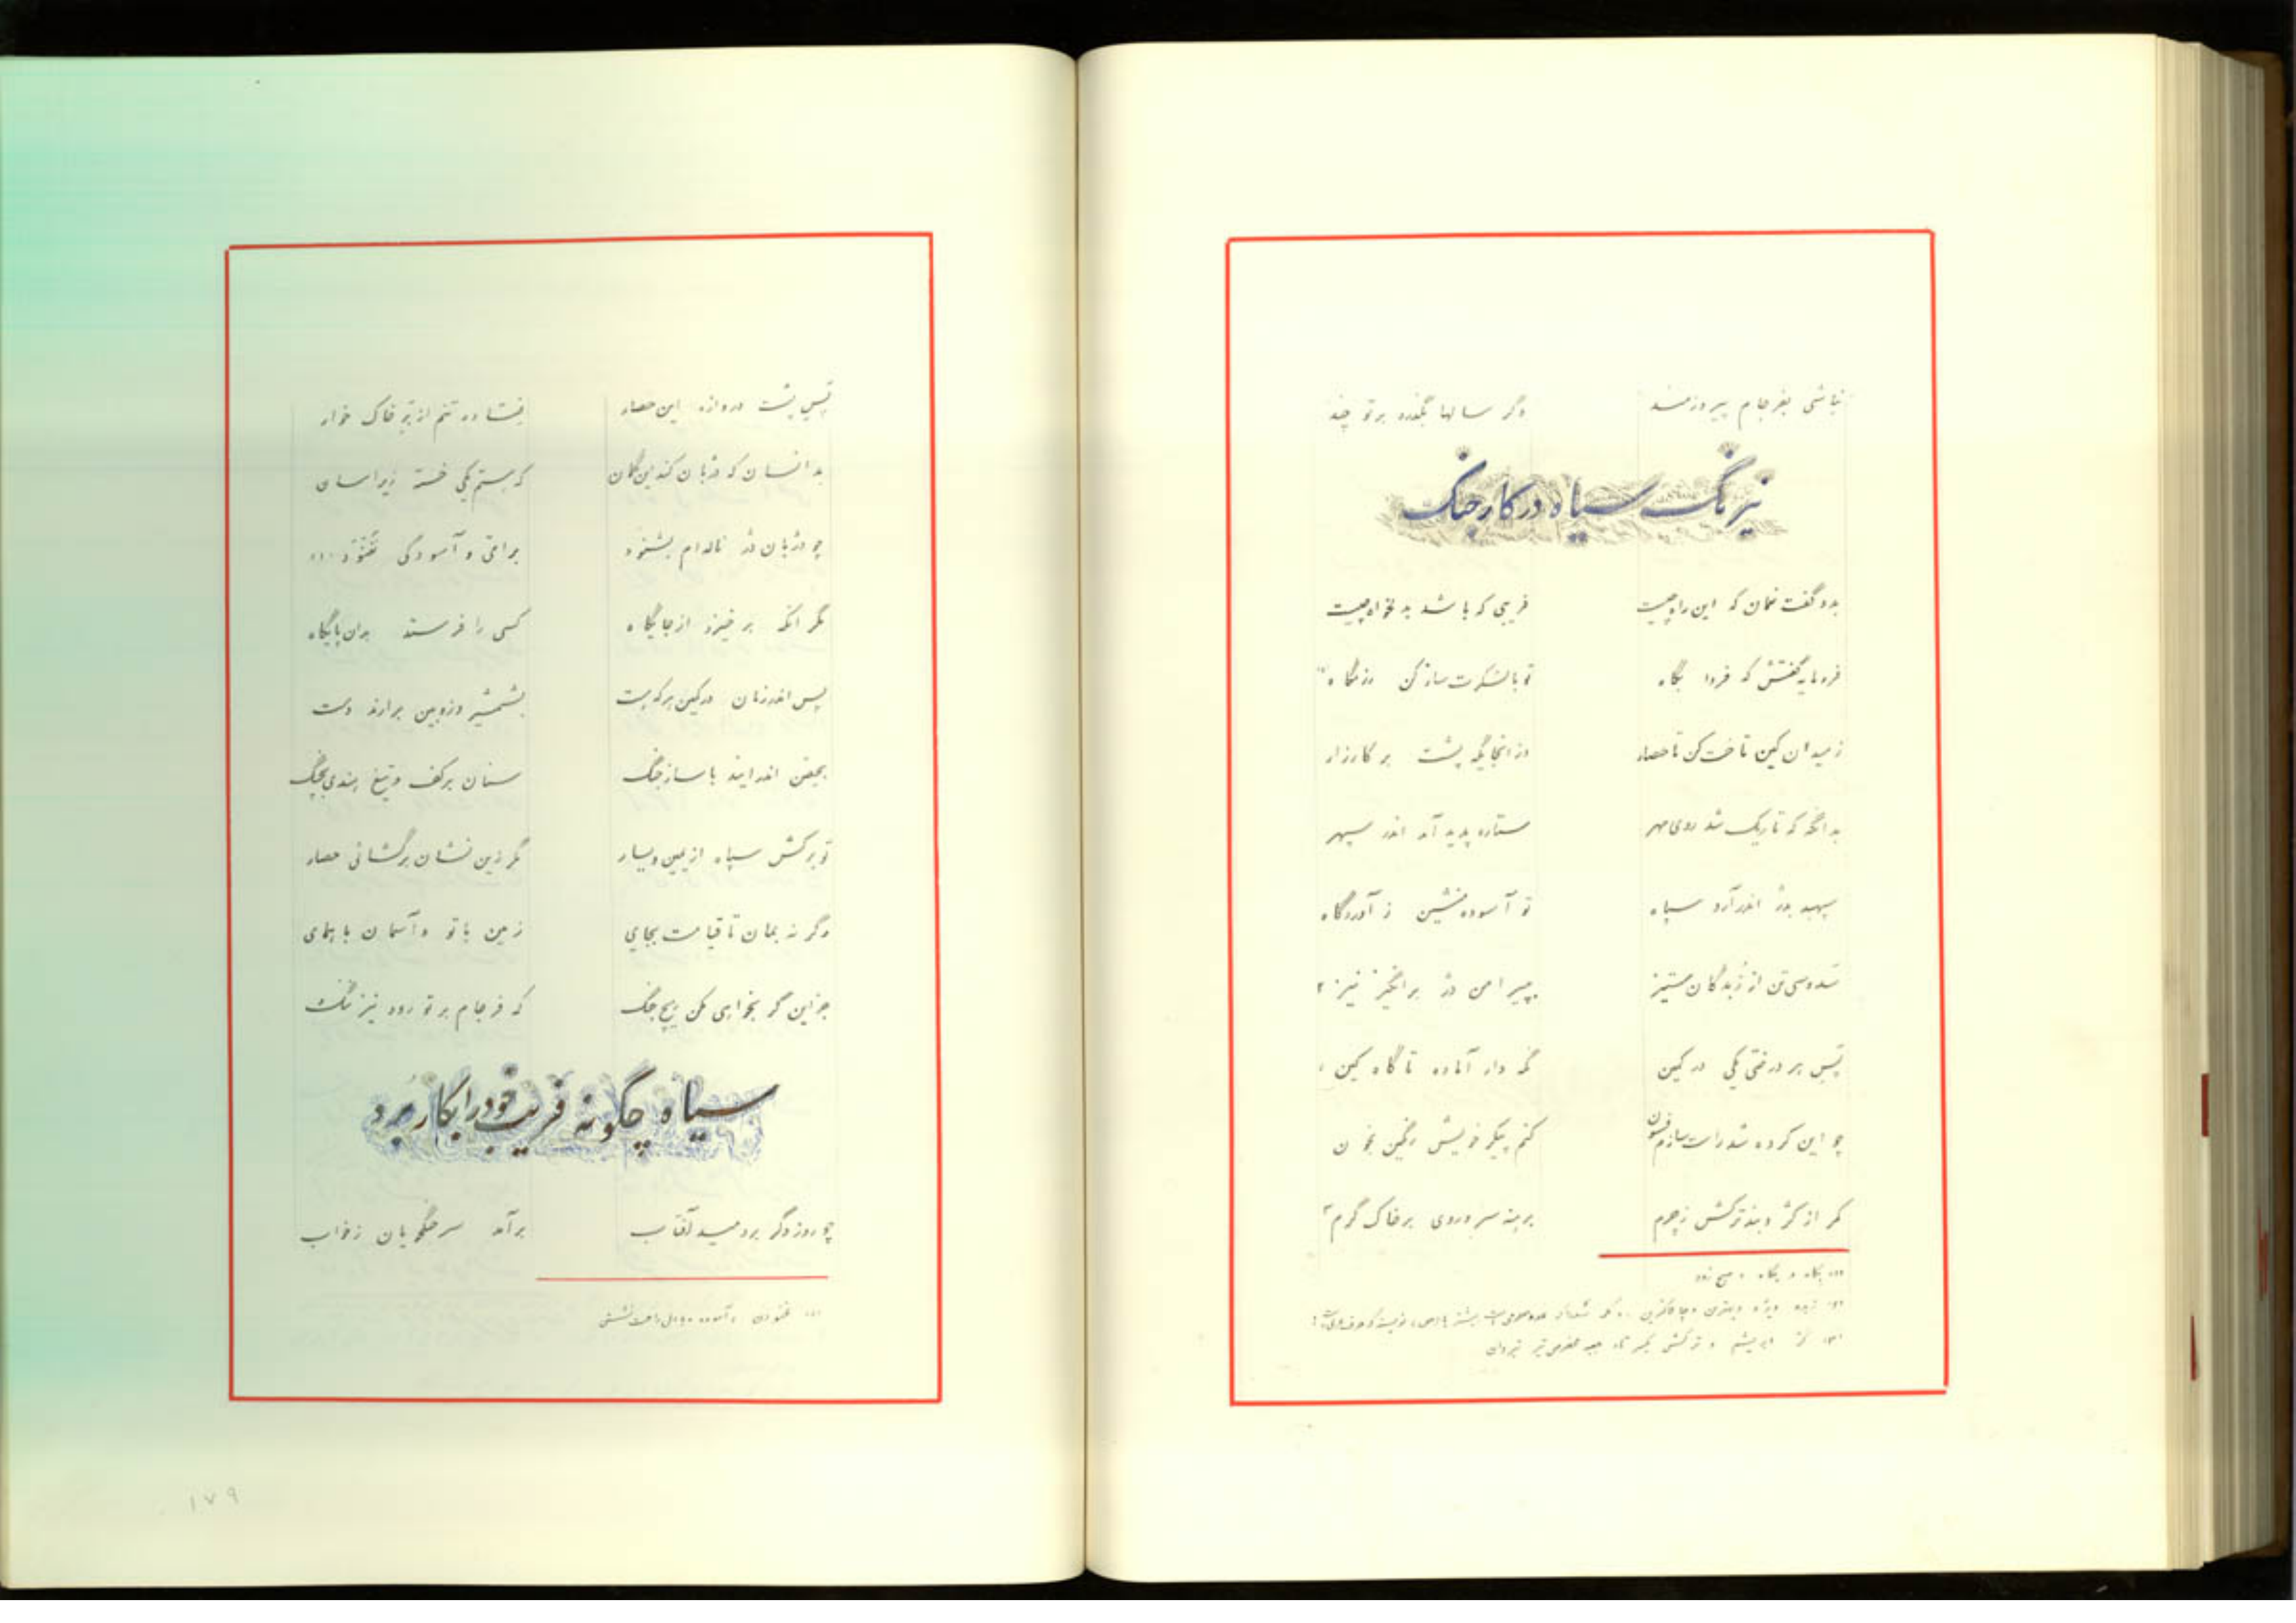 نباشی بفرجام پیروزمند دگر سالها بگذرد بر تو چند
نیرنگ سیاه در کار جنگ
بدو گفت نعمان که این راه چیست فریبی که باشد بدخواه چیست
فرومایه گفتش که فردا بگاه تو با لشکرت ساز کن رزمگاه
ز میدان کین تاخت کن تا حصار وز آنجایگه پشت بر کارزار
بدانگه که تاریک شد روی مهر ستاره پدید آمد اندر سپهر
سپهبد بدژ اندر آرد سپاه تو آسوده منشین ز آوردگاه
تن از زبدگان ستیز پیرامن دژ برانگیز نیز ۲
پس هر درختی یکی در کمین نگه دار آماده تا گاه کین
چو این کرده شد راست سازم فسون کنم پیکر خویش رنگین بخون
کمر از کژ و بند ترکش ز چرم برهنه سر و روی بر خاک گرم ۳
(۱) بگاه و پگاه ، صبح زود
زبده ویژه و بهترین
(۳) کژ ابریشم و ترکش تیردان
پس پشت دروازه این حصار فتاده تنم از بر خاک خوار
بدانسان که دژبان کند این گمان که هستم یکی خسته زیر اسان
چو دژبان دژ ناله‌ام بشنود براحتی و آسودگی نغنود (۱)
مگر آنکه برخیزد از جایگاه کسی را فرستد بدان پایگاه
پس اندر زمان در کمین هر که هست بشمشیر و زوبین برآرند دست
بحصن اندر آیند با ساز جنگ سنان بر کف و تیغ هندی بچنگ
تو برکش سپاه از یمین و یسار مگر زین نشان برگشائی حصار
وگر نه بمان تا قیامت بجای زمین با تو و آسمان با همای
جز این گر بخواهی مکن هیچ جنگ که فرجام بر تو رود نیز ننگ
سیاه چگونه فریب خود را بکار برد
چو روز دگر بردمید آفتاب برآمد سر جنگجویان ز خواب
(۱) غنودن ، آسودن
۱۷۹